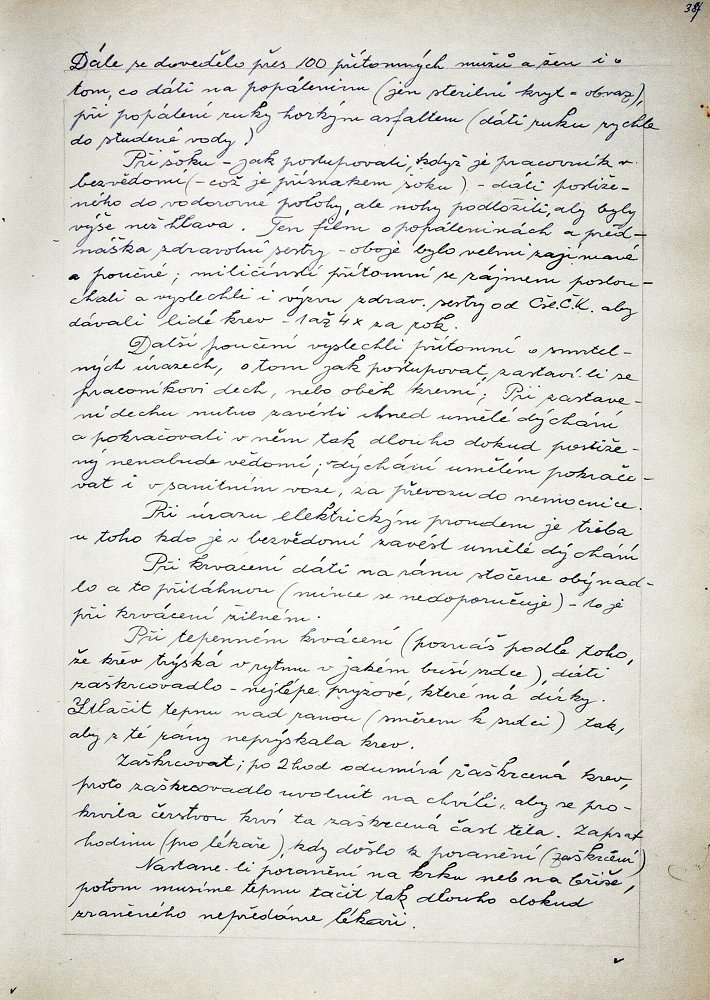 387
Dále se dovedělo přes 100 přítomných mužů a žen i o
tom, co dáti na popáleninu (jen sterilní kryt = obvaz),
při popálení ruky horkým asfaltem (dáti ruku rychle
do studené vody)
Při šoku - jak postupovati, když je pracovník v
bezvědomí (- což je příznakem šoku) - dáti postiže-
ného do vodorovné polohy, ale nohy podložiti, aby byly
výše než hlava. Ten film o popáleninách a před-
náška zdravotní sestry - oboje bylo velmi zajímavé
a poučné; miličínští přítomní se zájmem poslou-
chali a vyslechli i výzvu zdrav. sestry od Čs.Č.K. aby
dávali lidé krev - 1 až 4x za rok.
Další poučení vyslechli přítomní o smrtel-
ných úrazech, o tom jak postupovat, zastaví-li se
pracovníkovi dech, nebo oběh krevní; Při zastave-
ní dechu nutno zavésti ihned umělé dýchání
a pokračovati v něm tak dlouho dokud postiže-
ný nenabude vědomí; v dýchání umělém pokračo-
vat i v sanitním voze, za převozu do nemocnice.
Při úrazu elektrickým proudem je třeba
u toho kdo je v bezvědomí zavést umělé dýchání
Při krvácení dáti na ránu stočené obynad-
lo a to přitáhnou (mince se nedoporučuje) - to je
při krvácení žilném.
Při tepenném krvácení (poznáš podle toho,
že krev trýská v rytmu v jakém buší srdce), dáti
zaškrcovadlo - nejlépe pryžové, které má dírky.
Stlačit tepnu nad ranou (směrem k srdci) tak,
aby z té rány neprýskala krev.
Zaškrcovat; po 2 hod odumírá zaškrcená krev,
proto zaškrcovadlo uvolnit na chvíli, aby se pro-
krvila čerstvou krví ta zaškrcená část těla. Zapsat
hodinu (pro lékaře), kdy došlo k poranění (zaškrcení)
Nastane-li poranění na krku neb na břiše,
potom musíme tepnu tačit tak dlouho dokud
zraněného nepředáme lékaři.